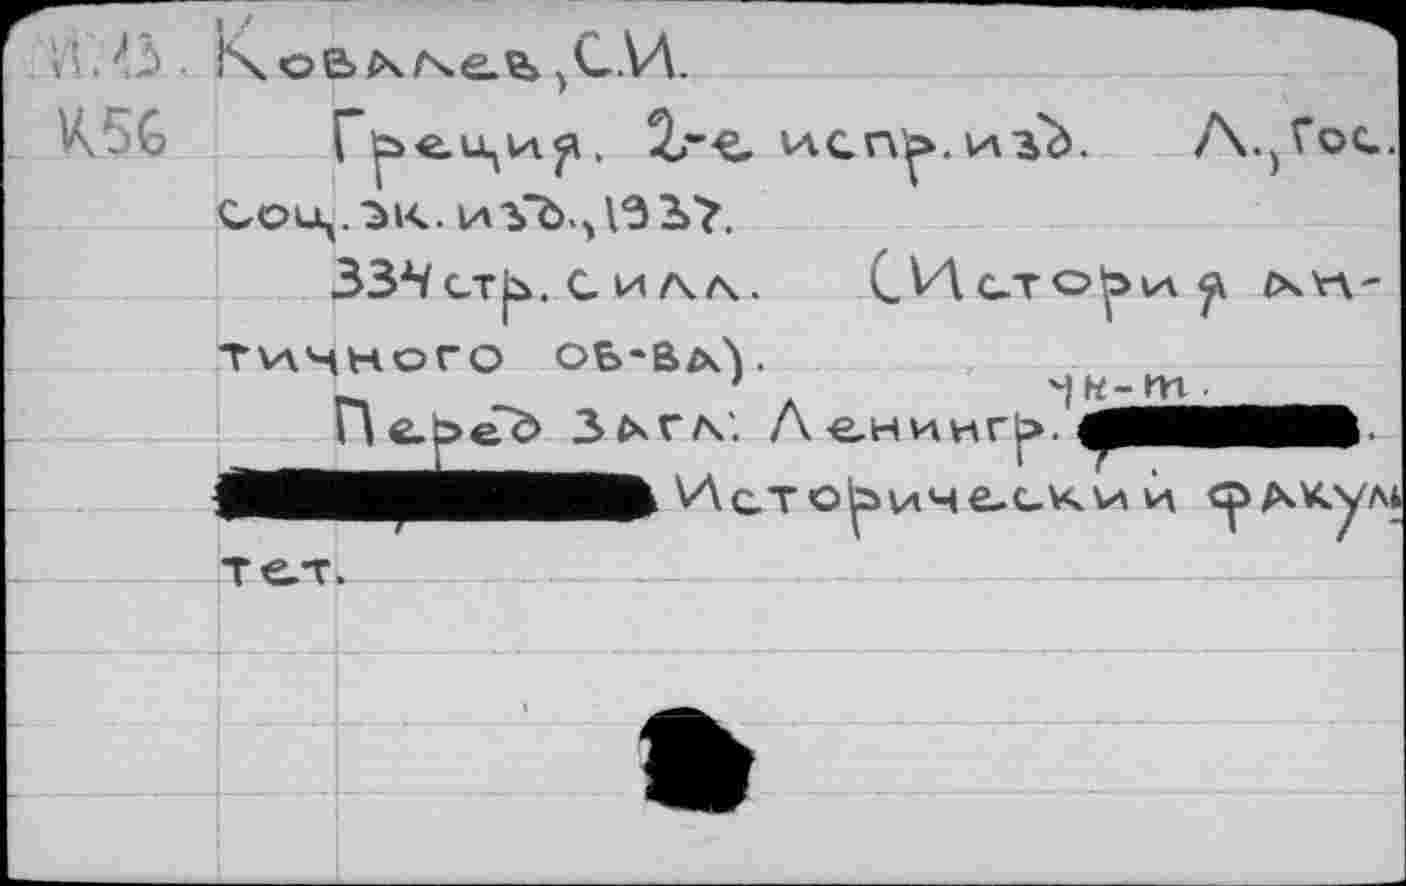 И.13. Ковалев, С.И.
К56 Греция. 2-е испр. изд. Л., Гос.
соц. эк. изд., 1937.
334 стр. с илл. (История ан-
тичного об-ва).
ун-т.
Перед загл: Ленингр.
Исторический факуль
тет.